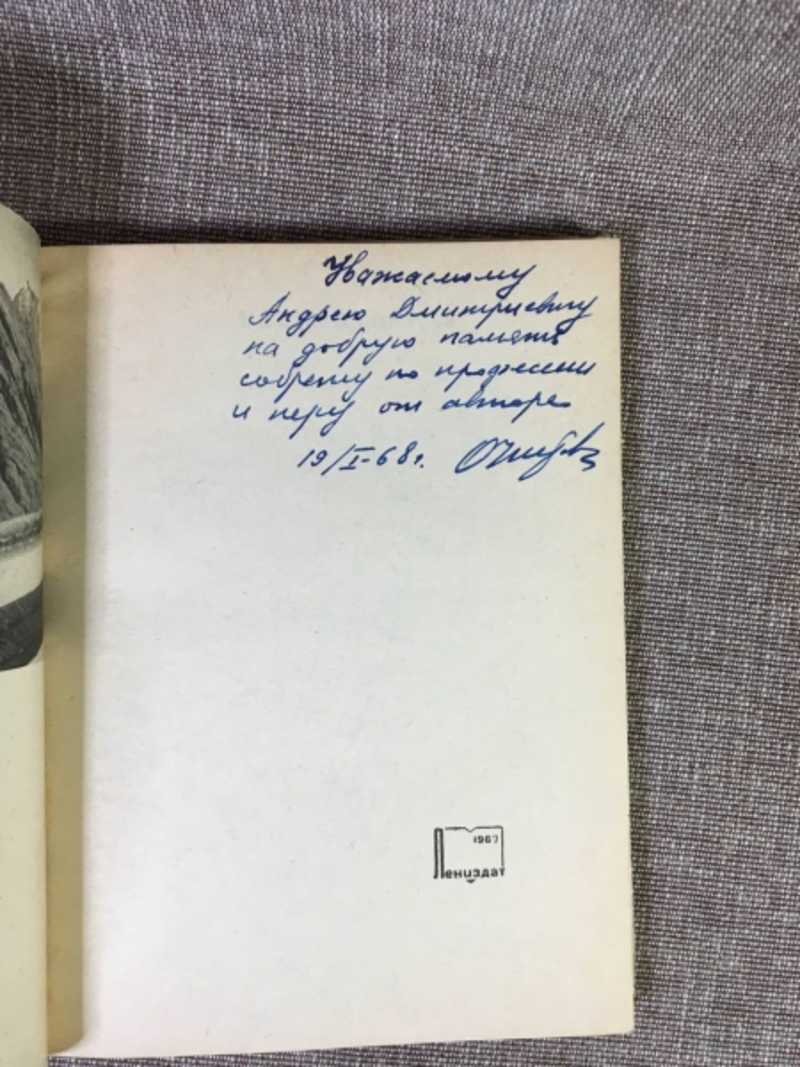 Уважаемому
Андрею Дмитриевичу
на добрую память
собрату по профессии
и перу от автора
19/I-68г.
1967
Лениздат